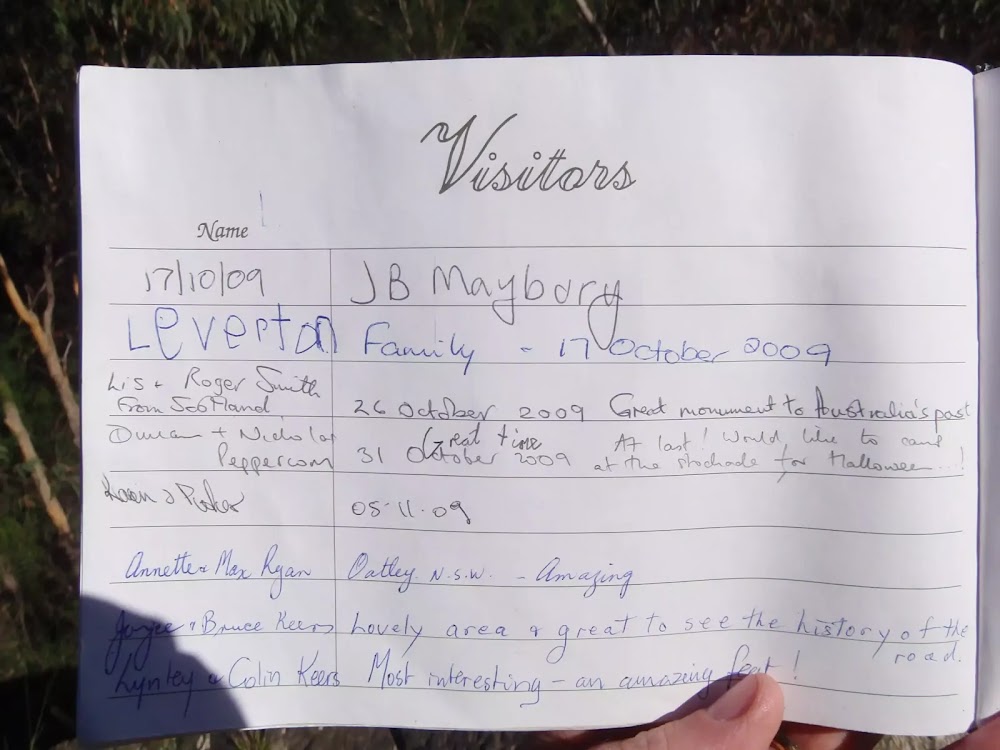 Visitors
Name
17/10/09 JB Maybury
Leverton Family - 17 October 2009
Lis + Roger Smith
From Scotland 26 October 2009 Great monument to Australia's past
Duncan + Nicholas Great time At last! Would like to camp
Peppercorn 31 October 2009 at the stockade for Halloween...!
05.11.09
Annette & Max Ryan Oatley N.S.W. - Amazing
Joyce & Bruce Keers Lovely area & great to see the history of the
road.
Lynley & Colin Keers Most interesting - an amazing feat!